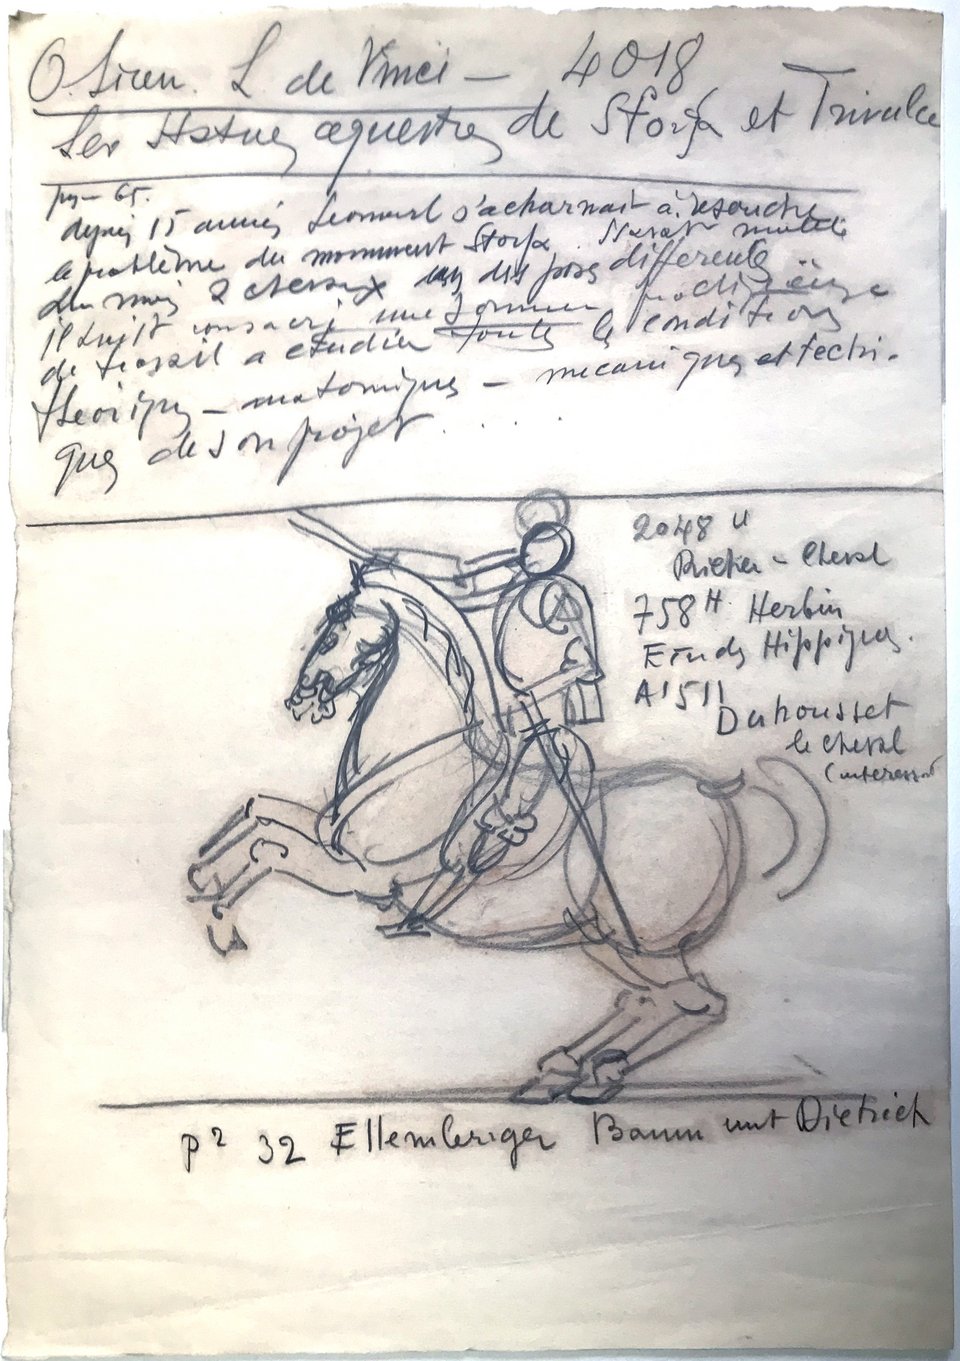 O. Siren. L. de Vinci — 4018
Les Statues equestres de Sforza et Trivulce
pag — 65.
depuis 15 années Leonard s'acharnait à resoudre
le problème du monument Sforza. Il avait modelé
au moins 2 chevaux dans des poses differentes
Il avait consacré une somme prodigieuse
de travail a etudier toutes les conditions
theoriques — anatomiques — mecaniques et techni-
ques de son projet . . . .
2048 u
Richer - Cheval
758 H. Herbin
Etudes Hippiques.
A 1511
Duhousset
le cheval
(interessant
p2 32 Ellemberiger Baum unt Dietrich